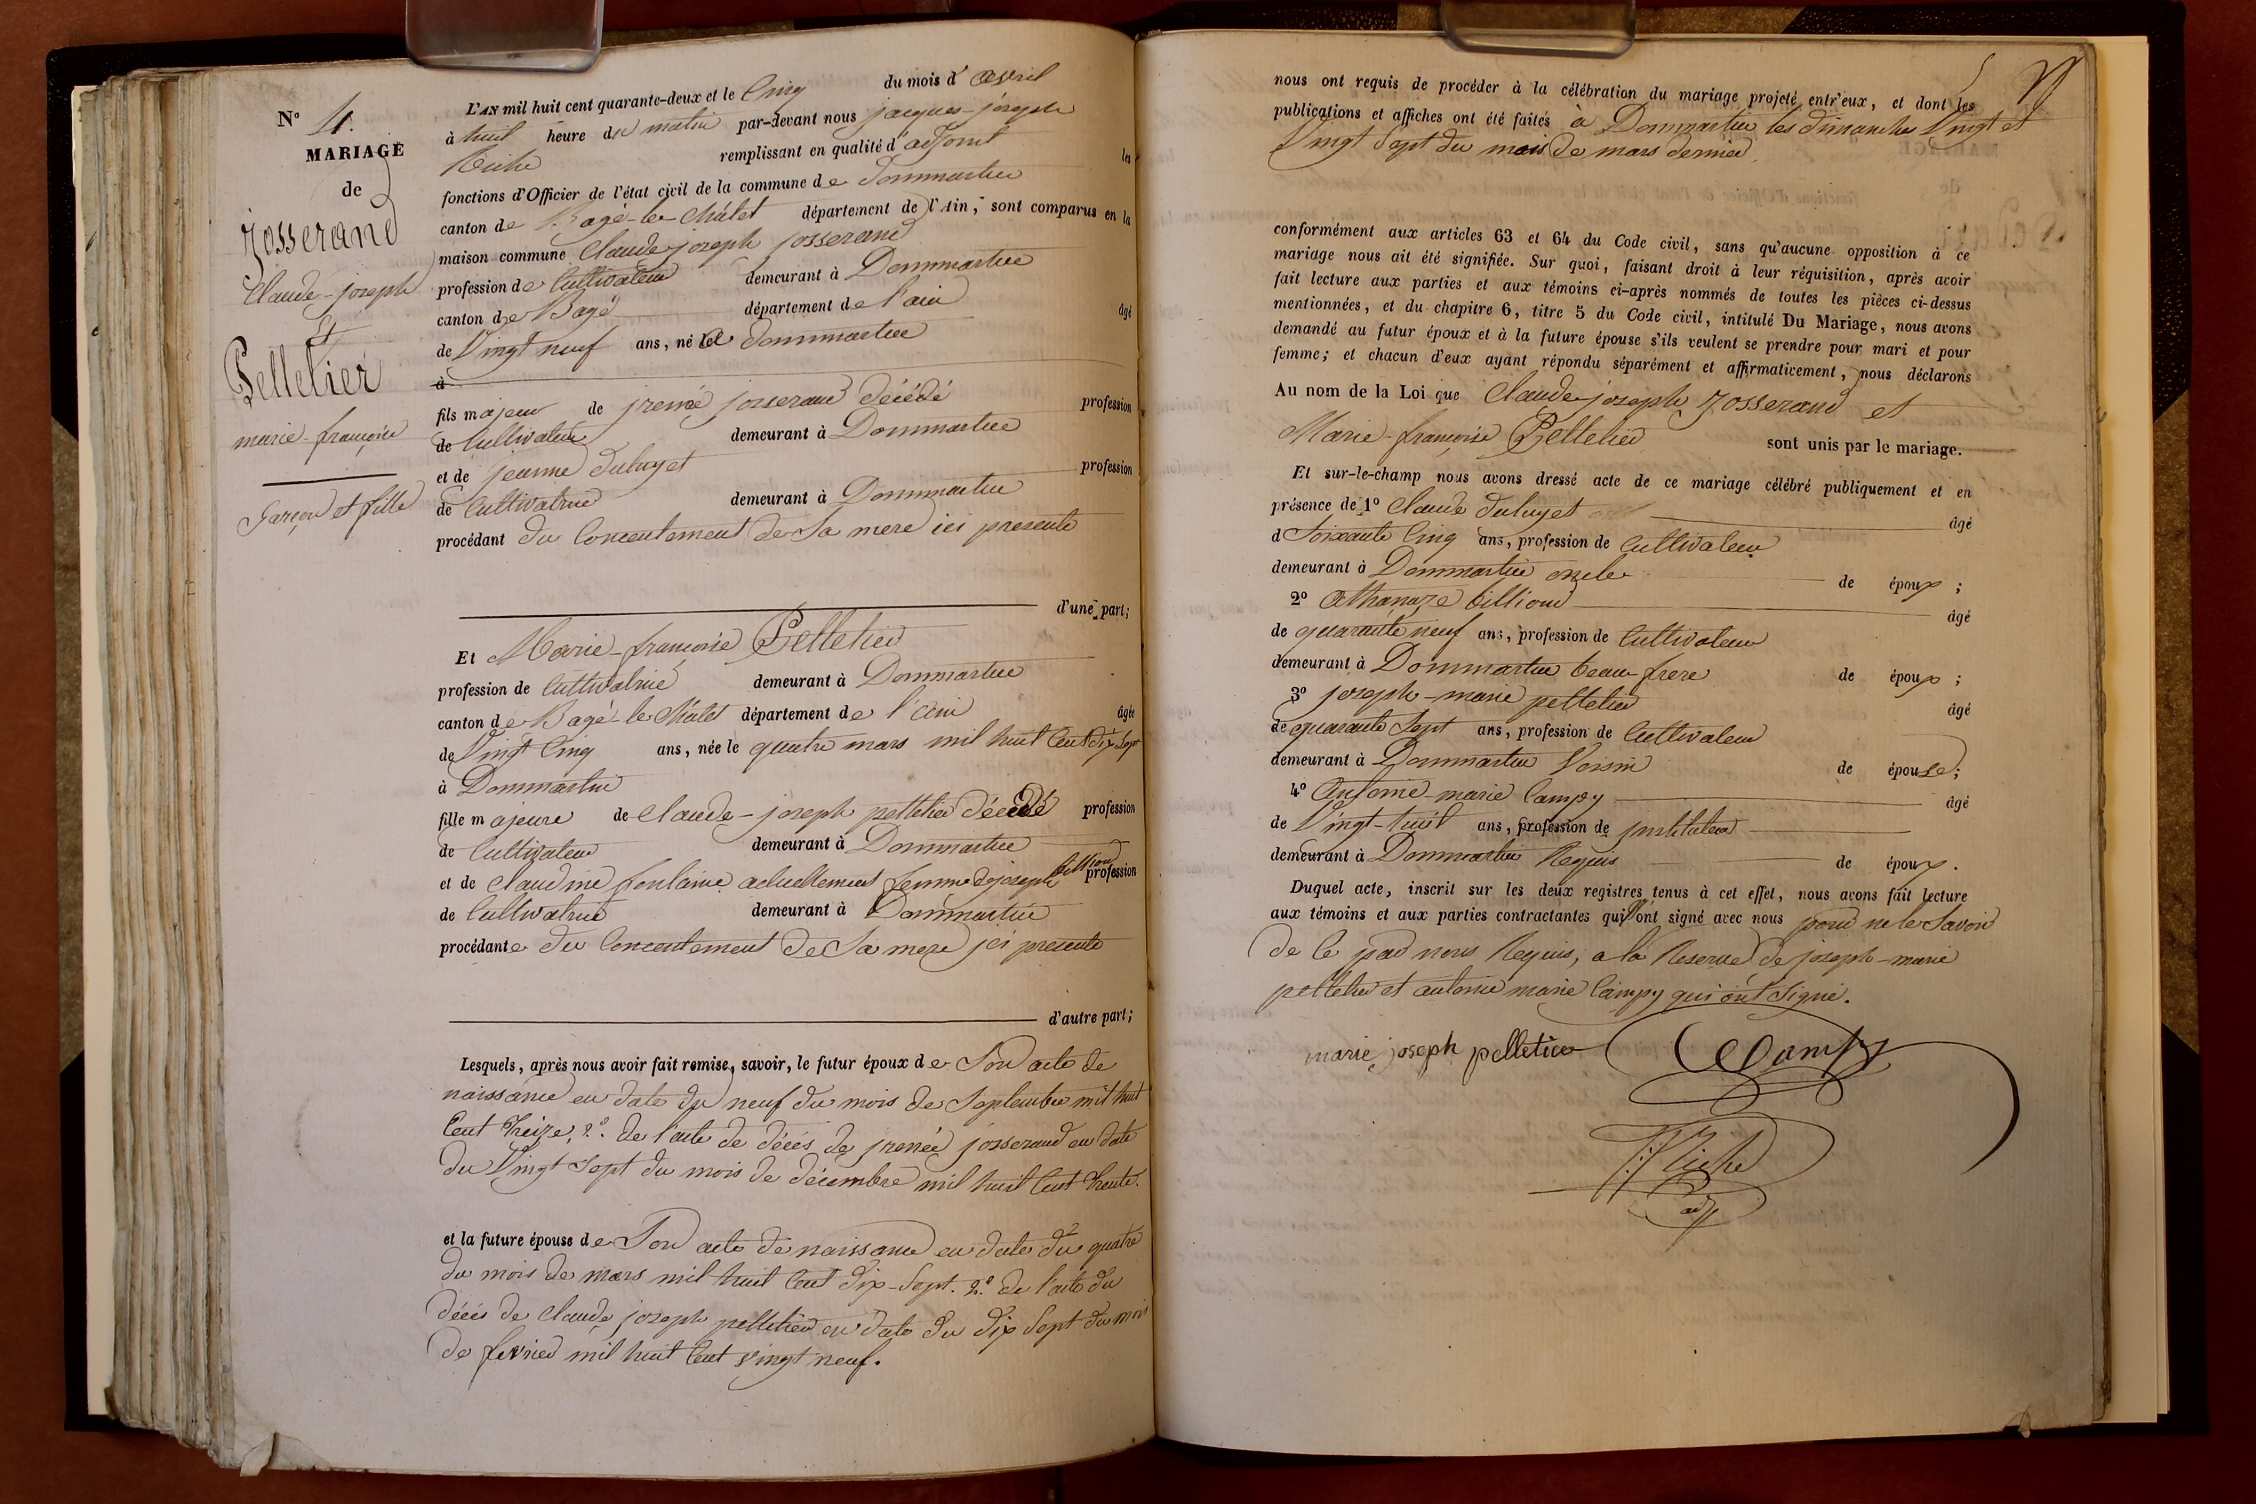 N° 4.
MARIAGE
de
Josserand
Claude-joseph
Et
Pelletier
marie-françoise
Garçon et fille
L'AN mil huit cent quarante-deux et le Cinq du mois d' Avril
à huit heure du matin par-devant nous jacques-joseph
Riche remplissant en qualité d'adjoint les
fonctions d'Officier de l'état civil de la commune de Dommartin
canton de Bagé-le-Châtel département de l'Ain, sont comparus en la
maison commune Claude joseph josserand
profession de Cultivateur demeurant à Dommartin
canton de Bagé département de l'ain âgé
de Vingt neuf ans, né à Dommartin
à
fils majeur de jrenée josserand décédé profession
de Cultivateur demeurant à Dommartin
et de jeanne duluyet profession
de Cultivatrice demeurant à Dommartin
procédant du Concentement de Sa mere ici presente
d'une part;
Et Marie-françoise Pelletier
profession de Cultivatrice demeurant à Dommartin
canton de Bagé-le-Châtel département de l'ain âgée
de Vingt Cinq ans, née le quatre mars mil huit Cent dix Sept
à Dommartin
fille majeure de Claude-joseph pelletier décédé profession
de Cultivateur demeurant à Dommartin
et de Claudine fontaine actuellement femme de joseph billioud profession
de Cultivatrice demeurant à Dommartin
procédante du Concentement de Sa mere jci presente
d'autre part;
Lesquels, après nous avoir fait remise, savoir, le futur époux de Son acte de
naissance en date du neuf du mois de Septembre mil huit
Cent treize, 2°. de l'acte de décés de jrenée josserand en date
du Vingt Sept du mois de décembre mil huit Cent trente.
et la future épouse de Son acte de naissance en date du quatre
du mois de mars mil huit Cent dix-Sept. 2.° de l'acte du
décés de Claude joseph pelletier en date du dix Sept du mois
de fevrier mil huit Cent vingt neuf.
nous ont requis de procéder à la célébration du mariage projeté entr'eux, et dont les
publications et affiches ont été faites à Dommartin les dimanches Vingt et
Vingt Sept du mois de mars dernier.
conformément aux articles 63 et 64 du Code civil, sans qu'aucune opposition à ce
mariage nous ait été signifiée. Sur quoi, faisant droit à leur réquisition, après avoir
fait lecture aux parties et aux témoins ci-après nommés de toutes les pièces ci-dessus
mentionnées, et du chapitre 6, titre 5 du Code civil, intitulé Du Mariage, nous avons
demandé au futur époux et à la future épouse s'ils veulent se prendre pour mari et pour
femme; et chacun d'eux ayant répondu séparément et affirmativement, nous déclarons
Au nom de la Loi que Claude joseph Josserand et
Marie-françoise Pelletier sont unis par le mariage.
Et sur-le-champ nous avons dressé acte de ce mariage célébré publiquement et en
présence de 1° Claude duluyet âgé
d Soixante Cinq ans, profession de Cultivateur
demeurant à Dommartin oncle de époux;
2° Athanaze billioud âgé
de quarante neuf ans, profession de Cultivateur
demeurant à Dommartin beau-frere de époux;
3° joseph-marie pelletier âgé
de quarante Sept ans, profession de Cultivateur
demeurant à Dommartin Voisin de épouse;
4° Antoine-marie Campy âgé
de Vingt-huit ans, profession de jnstituteur
demeurant à Dommartin Requis de époux.
Duquel acte, inscrit sur les deux registres tenus à cet effet, nous avons fait lecture
aux témoins et aux parties contractantes qui n'ont signé avec nous pour ne le Savoir
de Ce par nous Requis, a la Reserve de joseph-marie
pelletier et antoine marie Campy qui ont Signé.
marie joseph pelletier Campy
Riche
adj